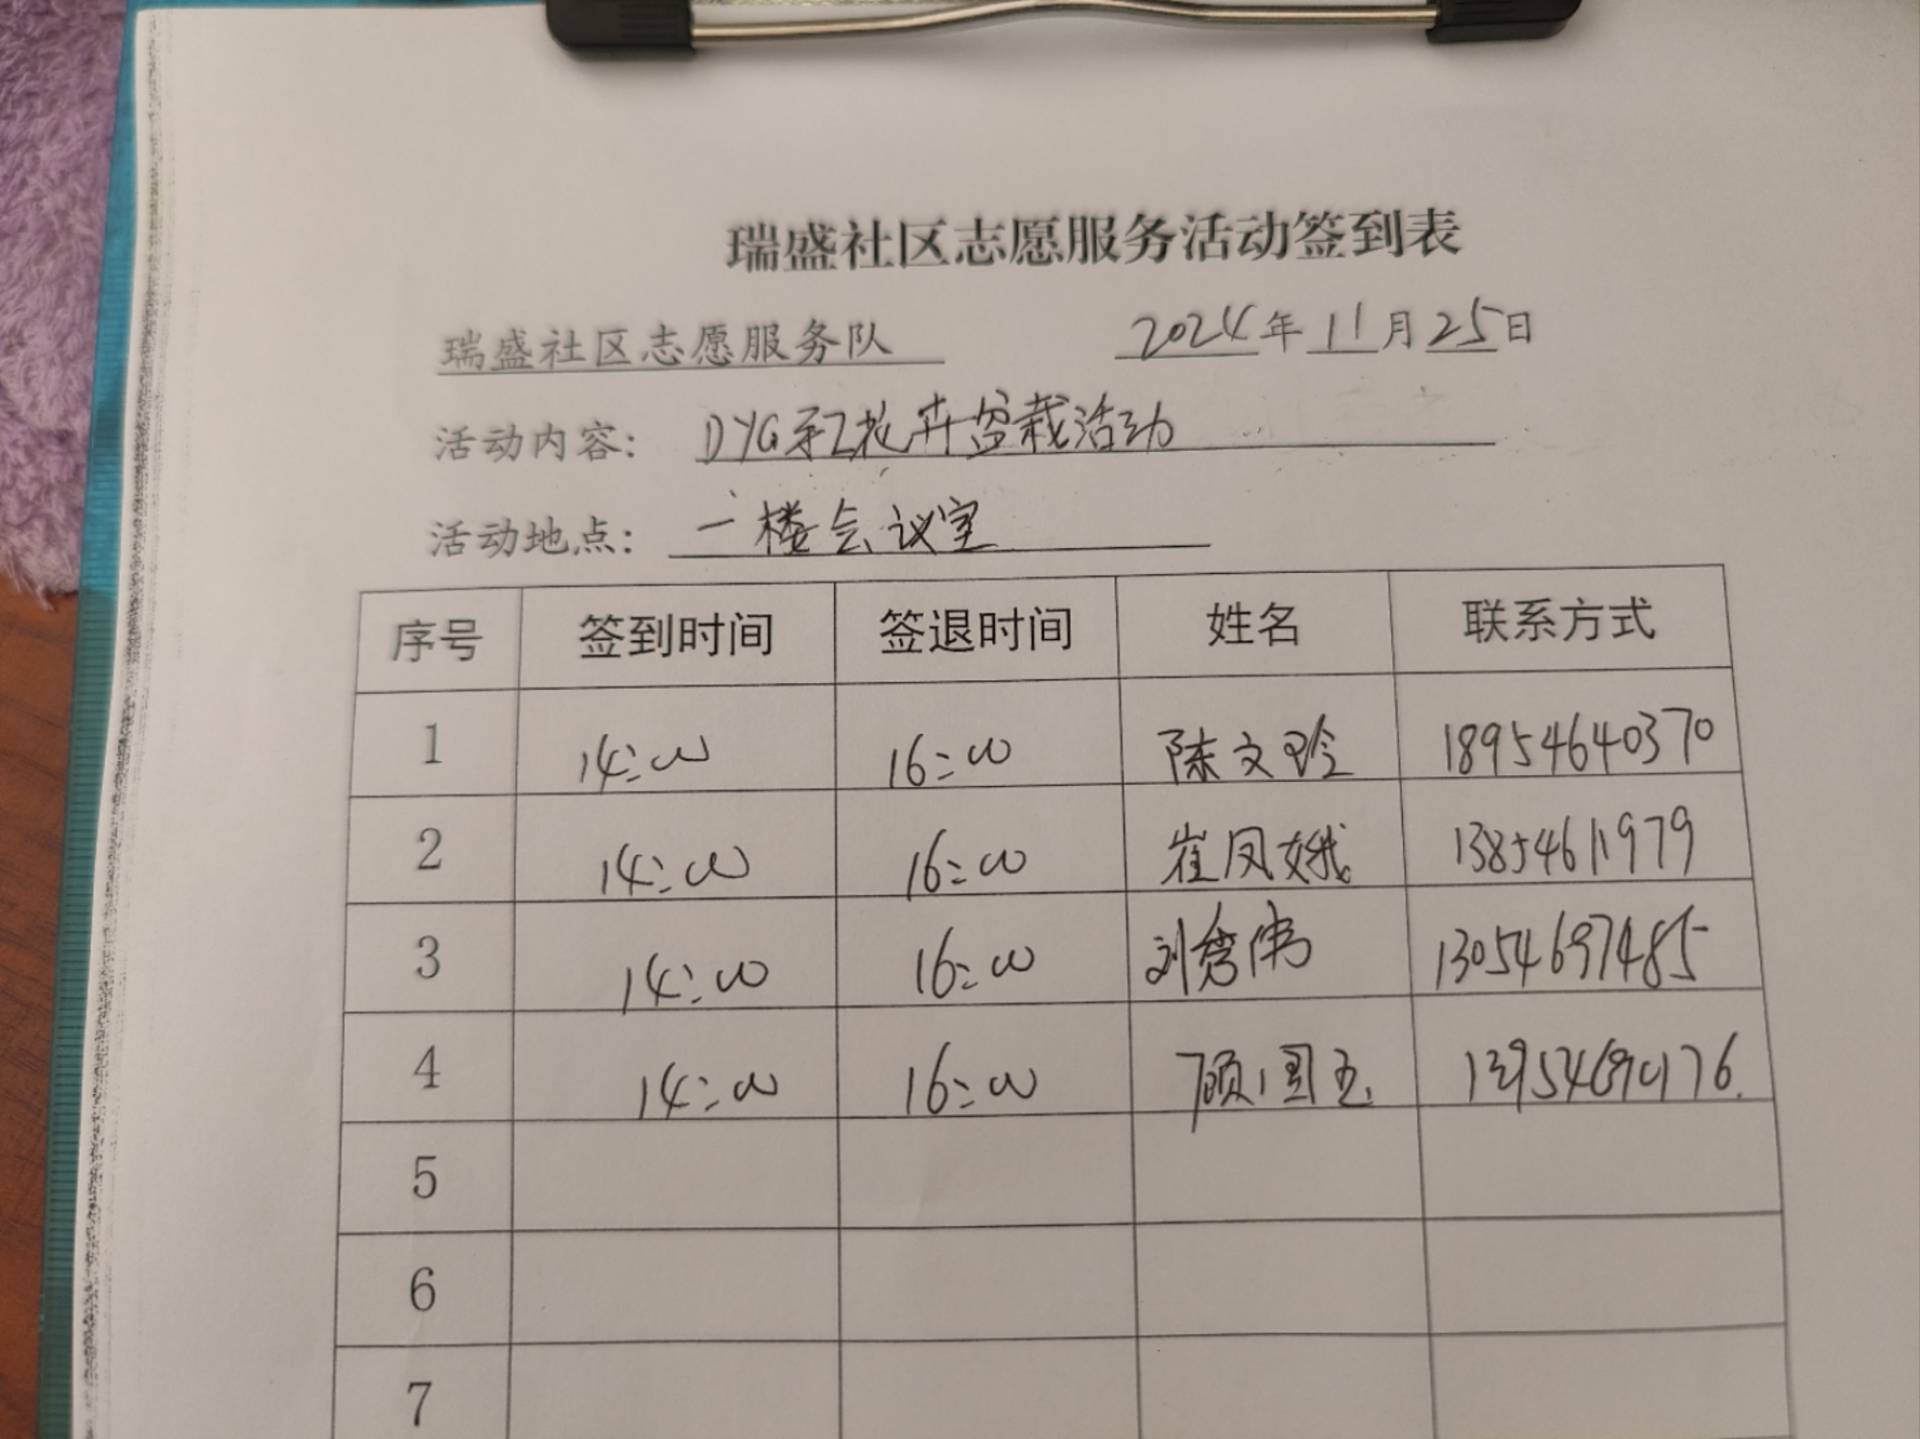 瑞盛社区志愿服务活动签到表
瑞盛社区志愿服务队 2024年11月25日
活动内容: DYG手工花卉盆栽活动
活动地点: 一楼会议室
序号 签到时间 签退时间 姓名 联系方式
1 14:00 16:00 陈文玲 18954640370
2 14:00 16:00 崔凤娥 13854611979
3 14:00 16:00 刘秀伟 13054697485
4 14:00 16:00 顾国玉
5
6
7